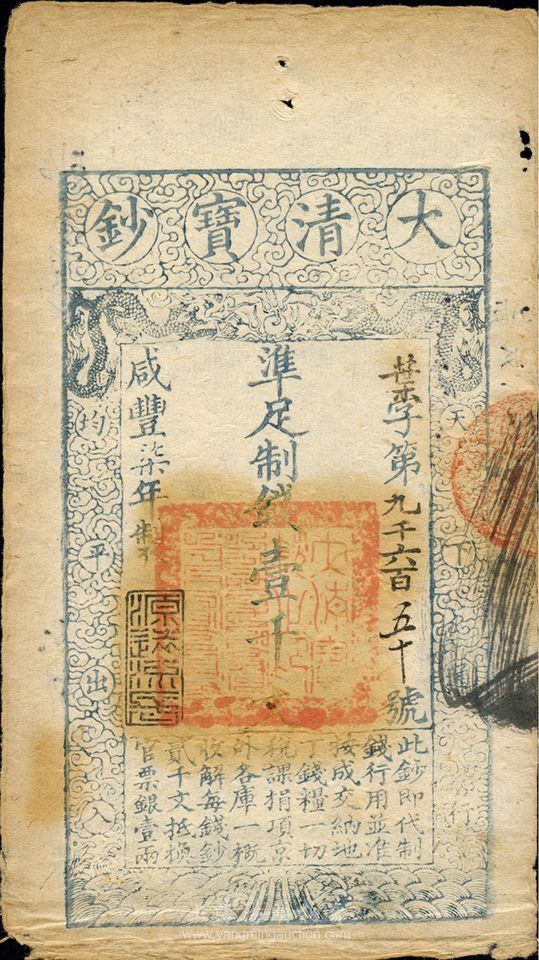 大清寶鈔
天下通行
字第九千六百五十號
準足制錢壹千文
咸豐柒年製
均平出入
此鈔即代制
錢行用並准
按成交納地
丁錢糧一切
稅課捐項京
外各庫一概
收解每錢鈔
貳千文抵換
官票銀壹兩
www.yangmingauction.com